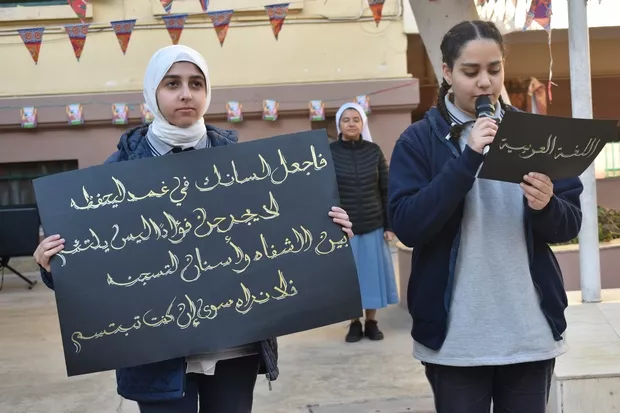 فاجعل لسانك في غمد ليحفظه
لا يجرحن فؤادا ليس يلتئم
بين الشفاه وأسنان لتسجنه
فلا نراه سوى إن كنت تبتسم
اللغة العربية